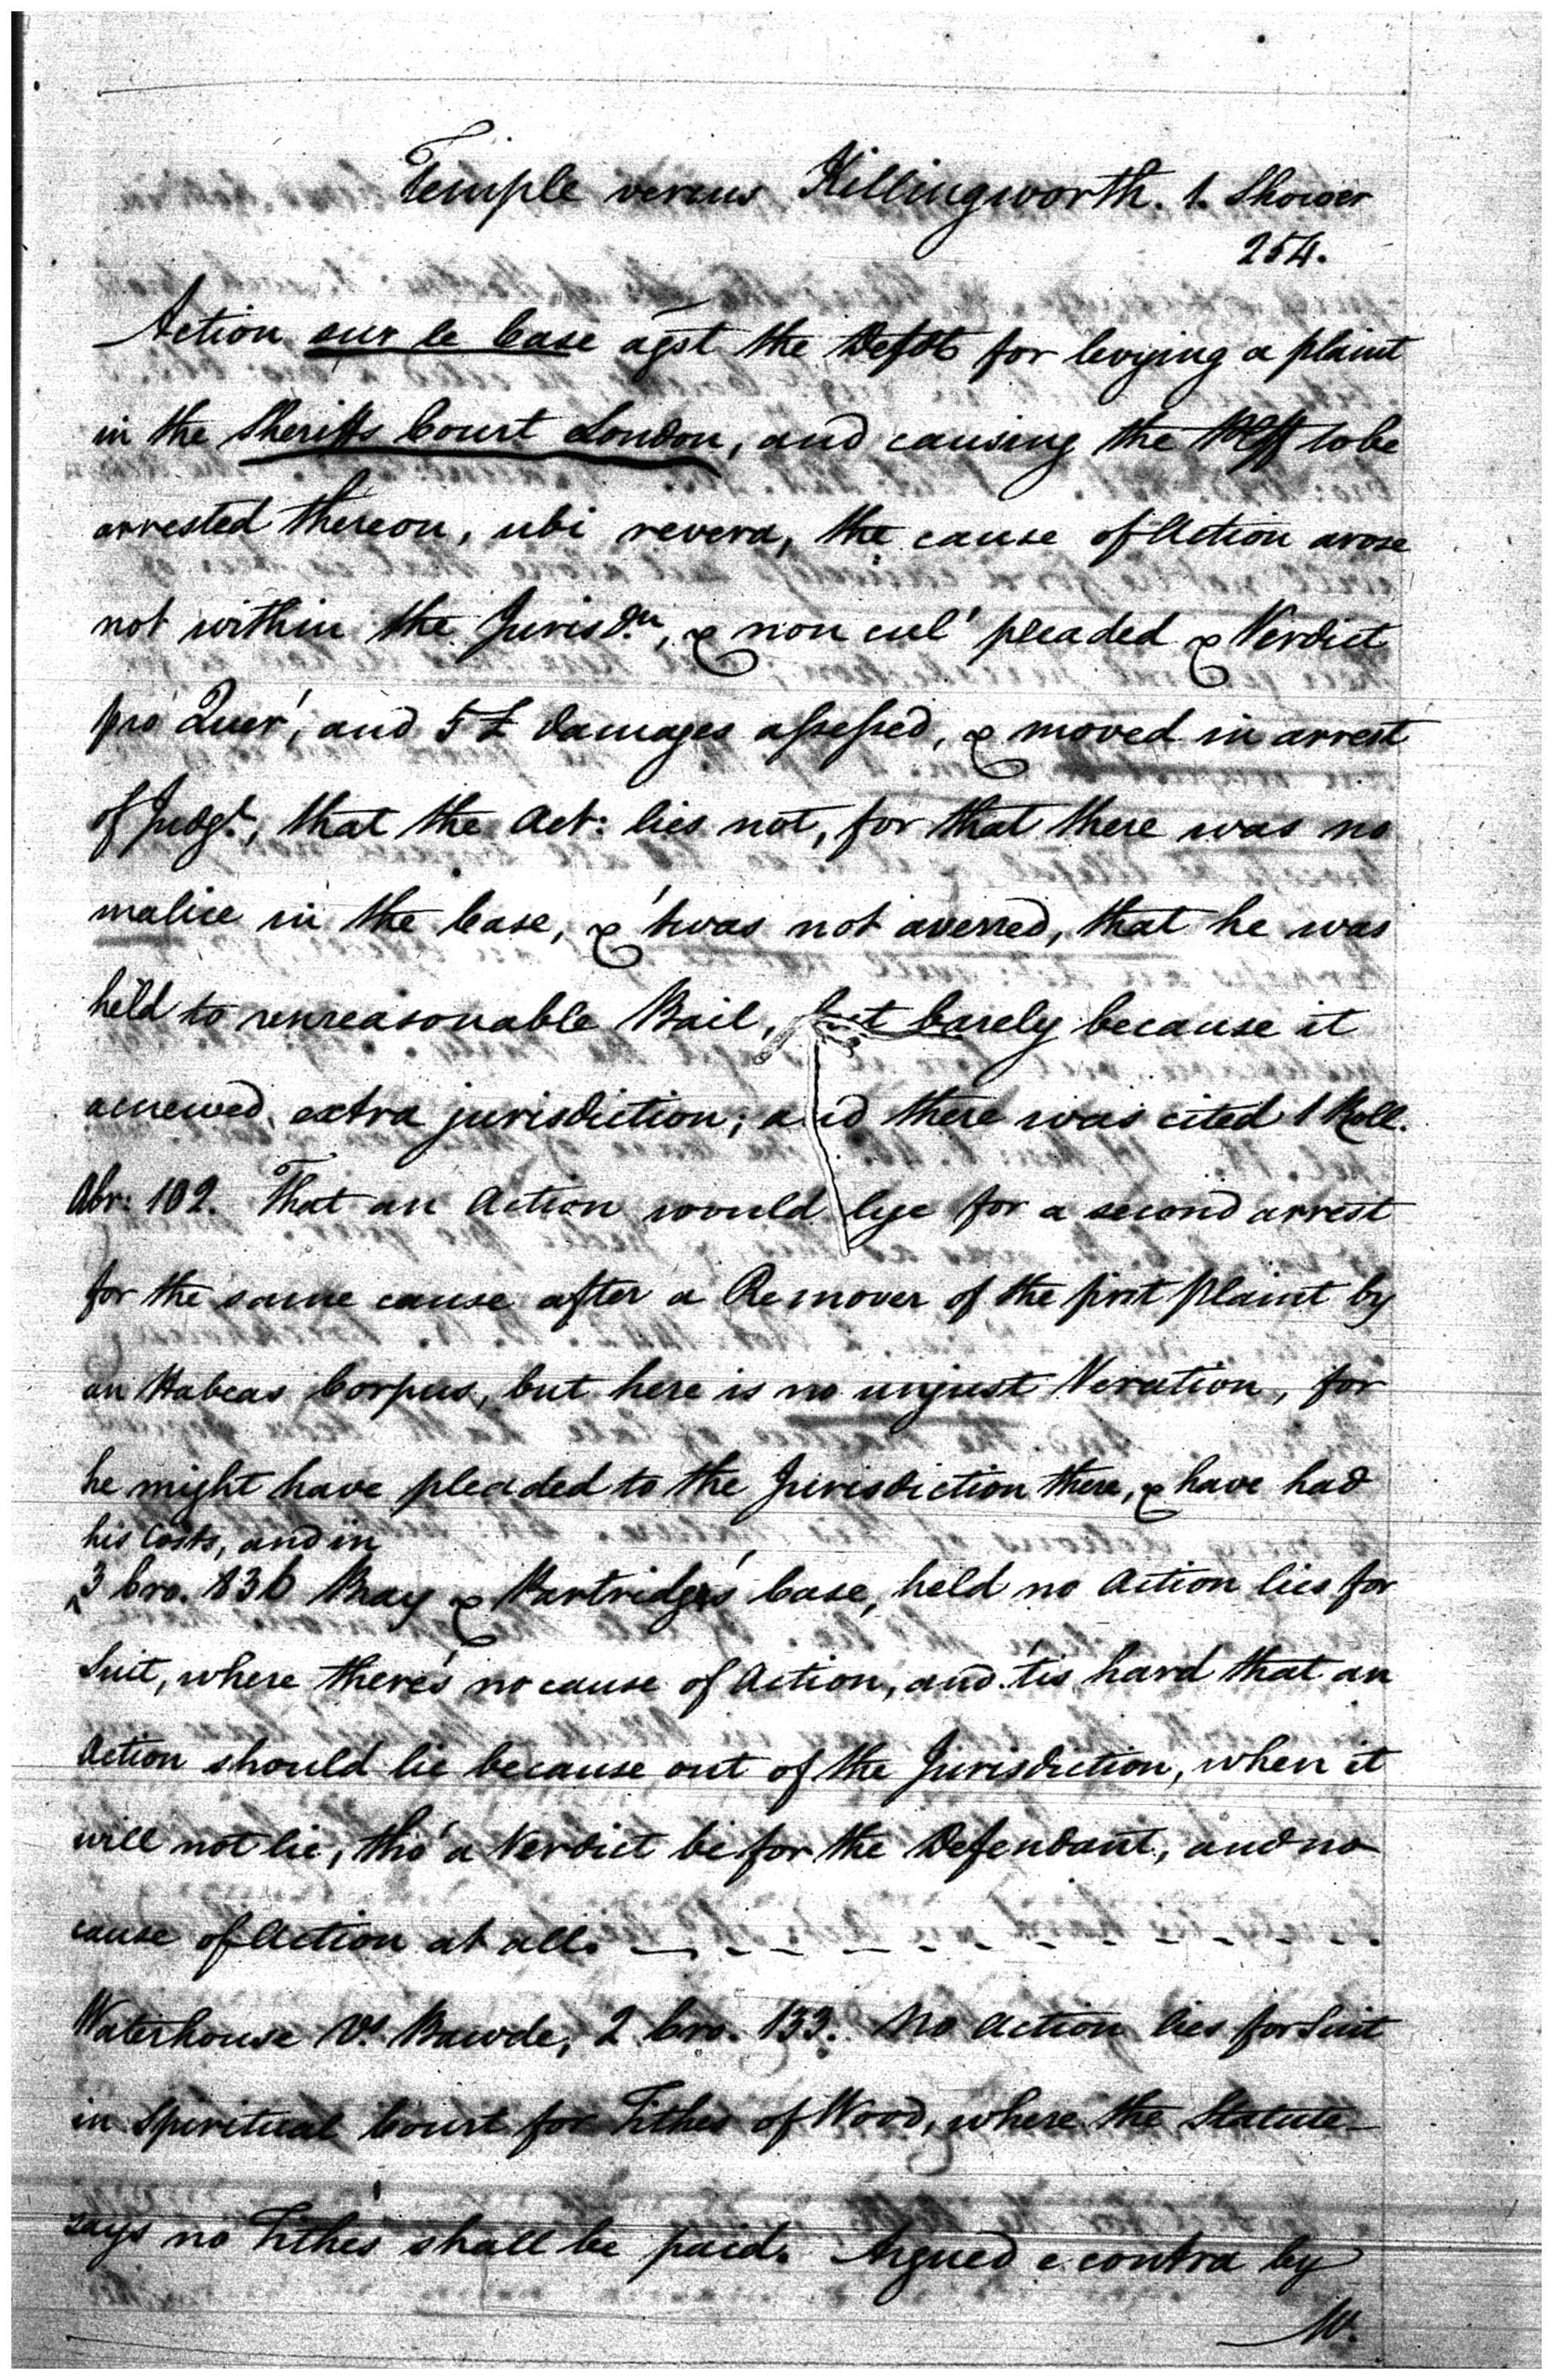 Temple versus Killingworth. 1. Shower
254.
Action sur le Case agst the Defdt for levying a plaint
in the Sheriffs Court London, and causing the Plff to be
arrested thereon, ubi revera, the cause of Action arose
not within the Jurisd.n, & non cul' pleaded & Verdict
pro Quer', and 5 £ damages assessed, & moved in arrest
of Judgt., that the Act: lies not, for that there was no
malice in the Case, & 'twas not averred, that he was
held to unreasonable Bail, but barely because it
accrewed extra jurisdiction; and there was cited 1 Roll.
Abr: 102. That an Action would lye for a second arrest
for the same cause after a Remover of the first plaint by
an Habeas Corpus, but here is no unjust Vexation, for
he might have pleaded to the Jurisdiction there, & have had
his Costs, and in
^3 Cro. 836 Bray & Partridge's Case, held no Action lies for
Suit, where there's no cause of Action, and 'tis hard that an
Action should lie because out of the Jurisdiction, when it
will not lie, tho' a Verdict be for the Defendant, and no
cause of Action at all. — - - - - - - - - - - - -
Waterhouse vs. Bawde, 2 Cro. 133. No Action lies for Suit
in Spiritual Court for Tithes of Wood, where the Statute
says no Tithes shall be paid. Argued e contra by
W.